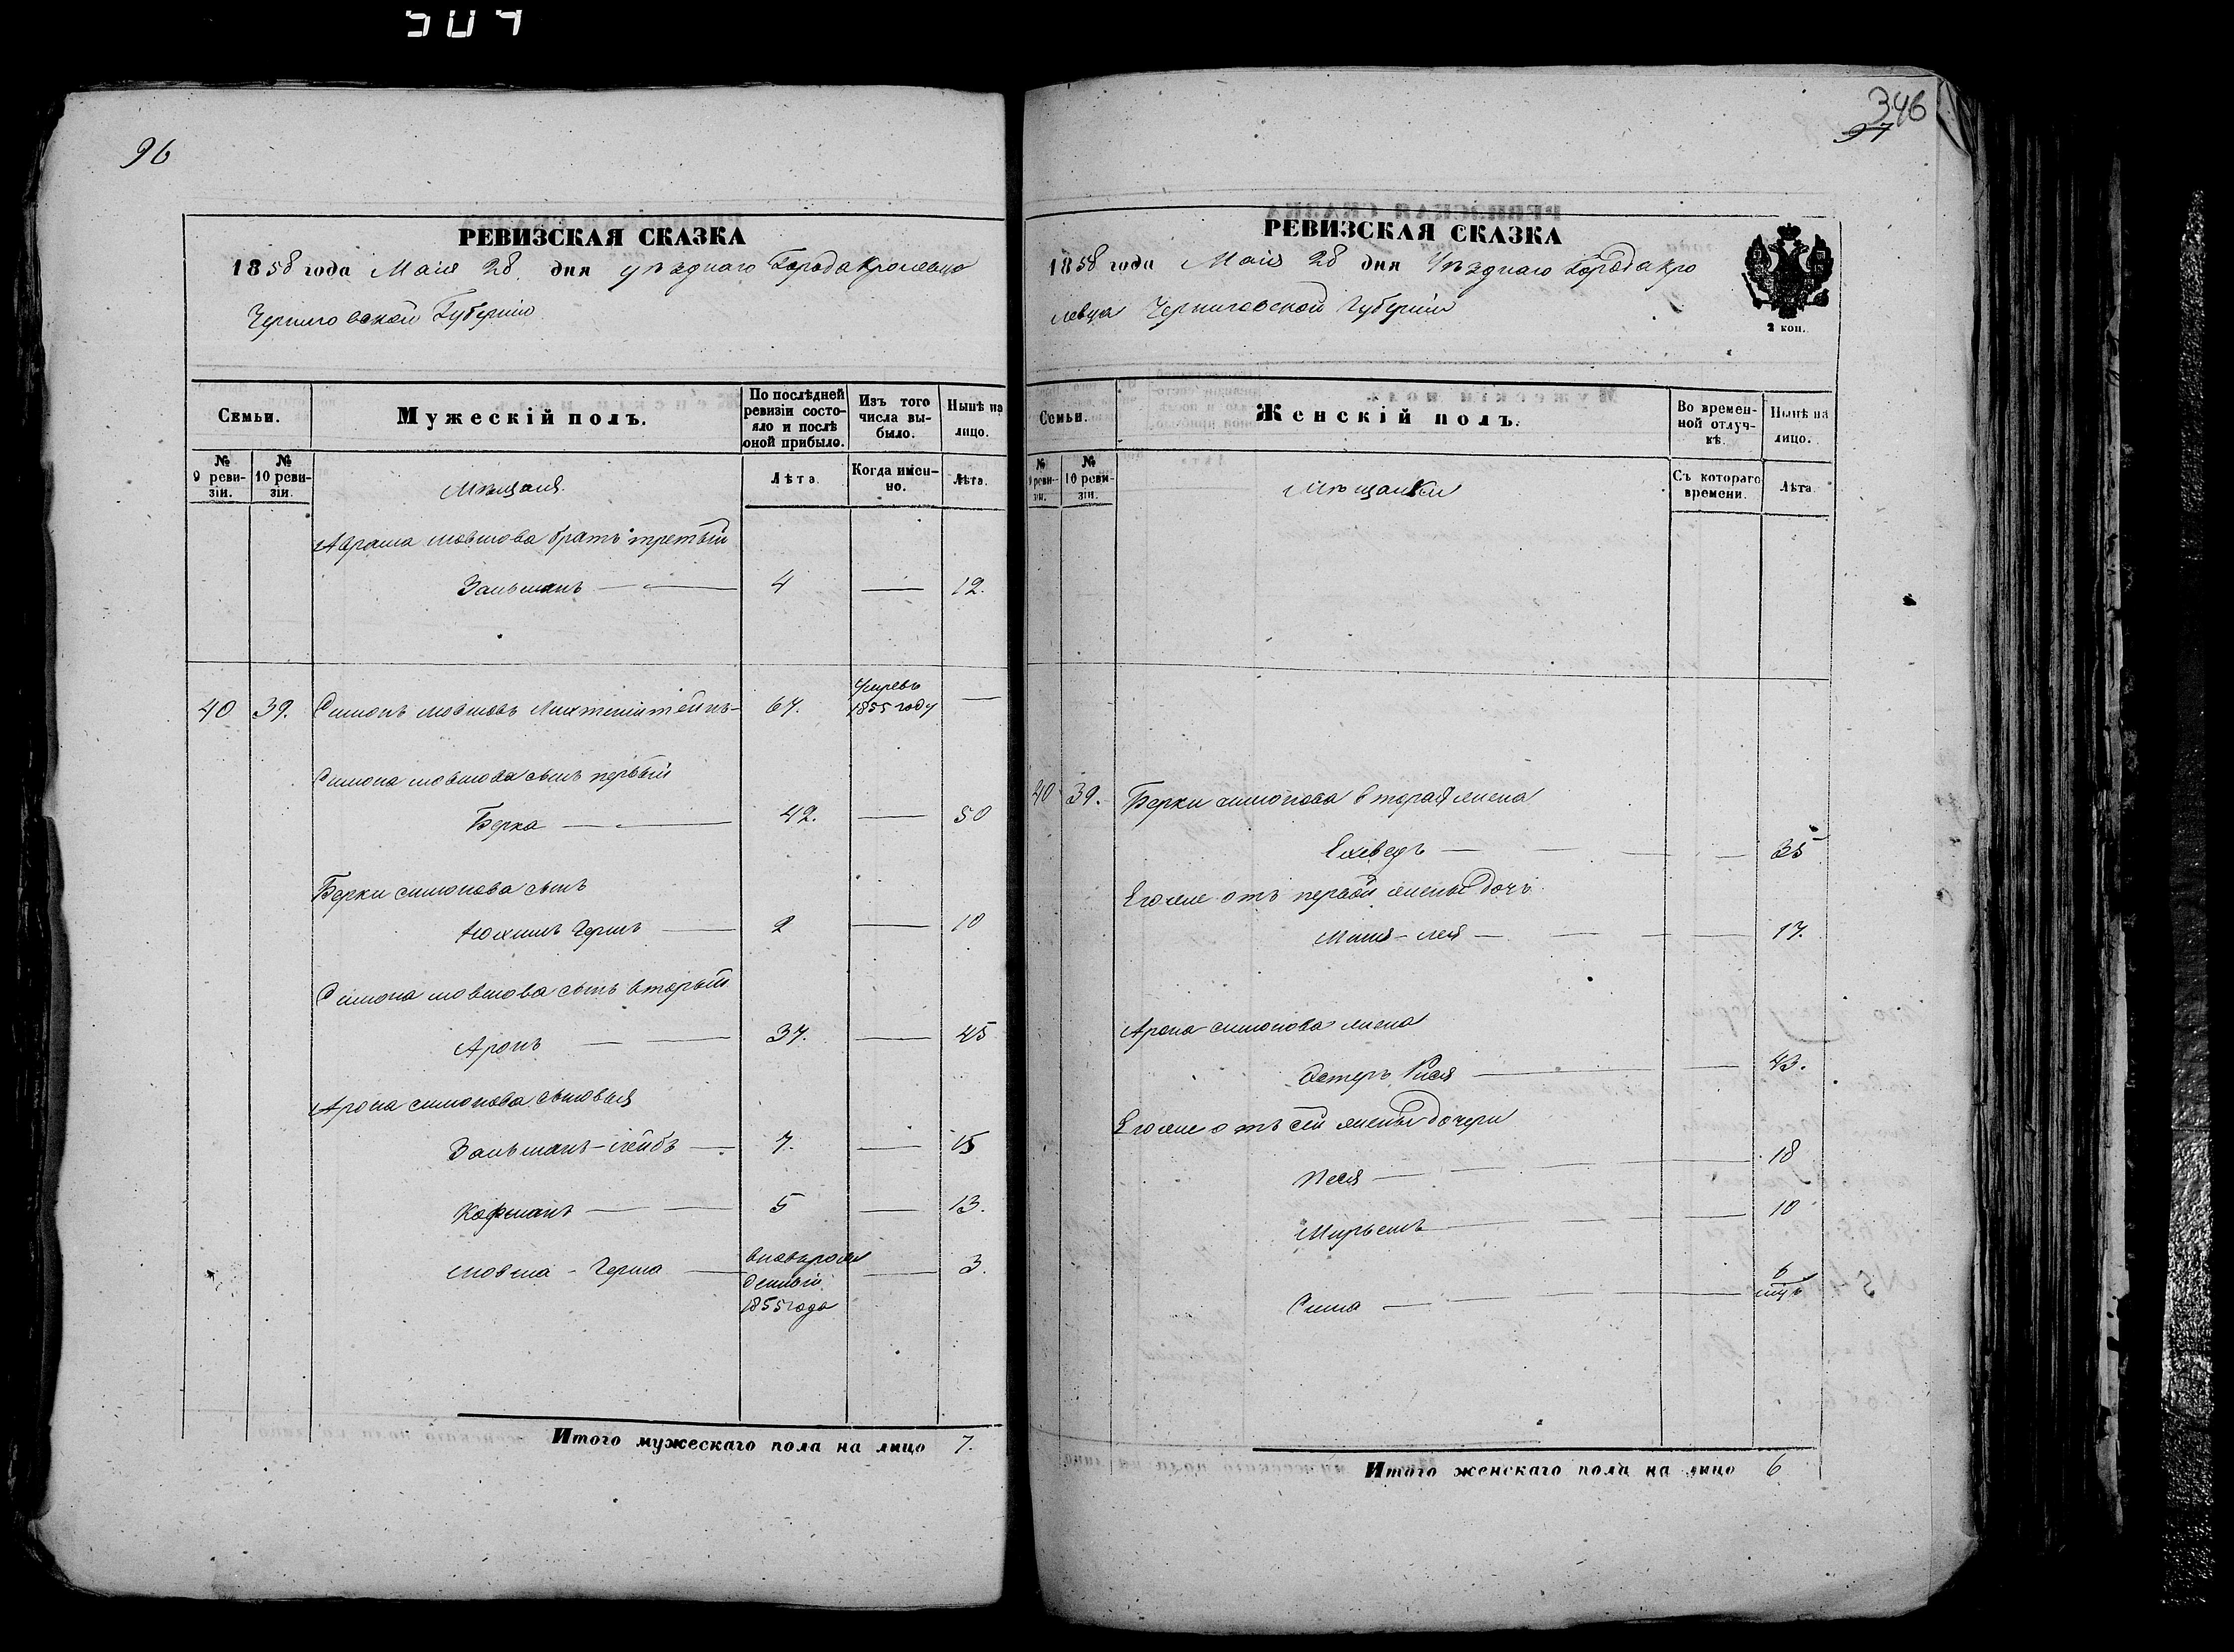 504
96
РЕВИЗСКАЯ СКАЗКА
1858 года Маія 28 дня уѣзднаго Города Кролевца
Черниговской Губерніи
Семьи.
Мужескій полъ.
По послѣдней ревизіи состояло и послѣ оной прибыло.
Изъ того числа выбыло.
Нынѣ на лицо.
№ 9 ревизіи.
№ 10 ревизіи.
Мѣщаня.
Лѣта
Когда именно.
Лѣта.
Абрама Мовшова братъ третьій
Зальманъ — 4 — 12.
40 39. Симонъ Мовшовъ Лихтенштейнъ - 67. Умре въ 1855 году —
Симона Мовшова сынъ первый
Берка — 42. — 50
Берки Симонова сынъ
Герша — 2 — 10
Симона Мовшова сынъ вторый
Аронъ — 37. — 45
Арона Симонова сыновья
Зальманъ-Лейбъ — 7. — 15
Кофманъ — 5 — 13.
Мовша - Герша — вновьрожденный 1855 года — 3.
Итого мужескаго пола на лицо 7.
346
97
РЕВИЗСКАЯ СКАЗКА
1858 года Маія 28 дня Уѣзднаго Города Кро
левца Черниговской Губерніи
2 коп.
Семьи.
Женскій полъ.
Во временной отлучкѣ.
Нынѣ на лицо.
№ 9 ревизіи.
№ 10 ревизіи.
Мѣщанки
Съ котораго времени.
Лѣта.
40 39. Берки Симонова вторая жена
Ехведъ — 35
Его же отъ первой жены дочь
Лея — 17.
Арона Симонова жена
Эстеръ Рися — 43.
Его же отъ сей жены дочери
Песя — 18
Мирьемъ — 10
Сима — 6
Итого женскаго пола на лицо 6